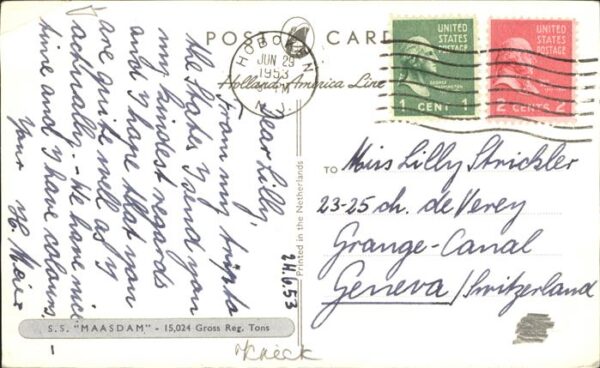 POST CARD
HOBOKEN
JUN 29
1953
N.J.
Holland-America Line
UNITED
STATES
POSTAGE
1 CENT 1
UNITED
STATES
POSTAGE
2 CENTS 2
Dear Lilly,
From my trip to
the States I send you
my kindest regards
and I hope that you
are quite well as I
actually. - We have nice
time and I have colours.
Your H. Meier
24.6.53
Printed in the Netherlands
TO Miss Lilly Strickler
23-25 ch. de Verey
Grange-Canal
Geneva / Switzerland
S.S. "MAASDAM" - 15,024 Gross Reg. Tons